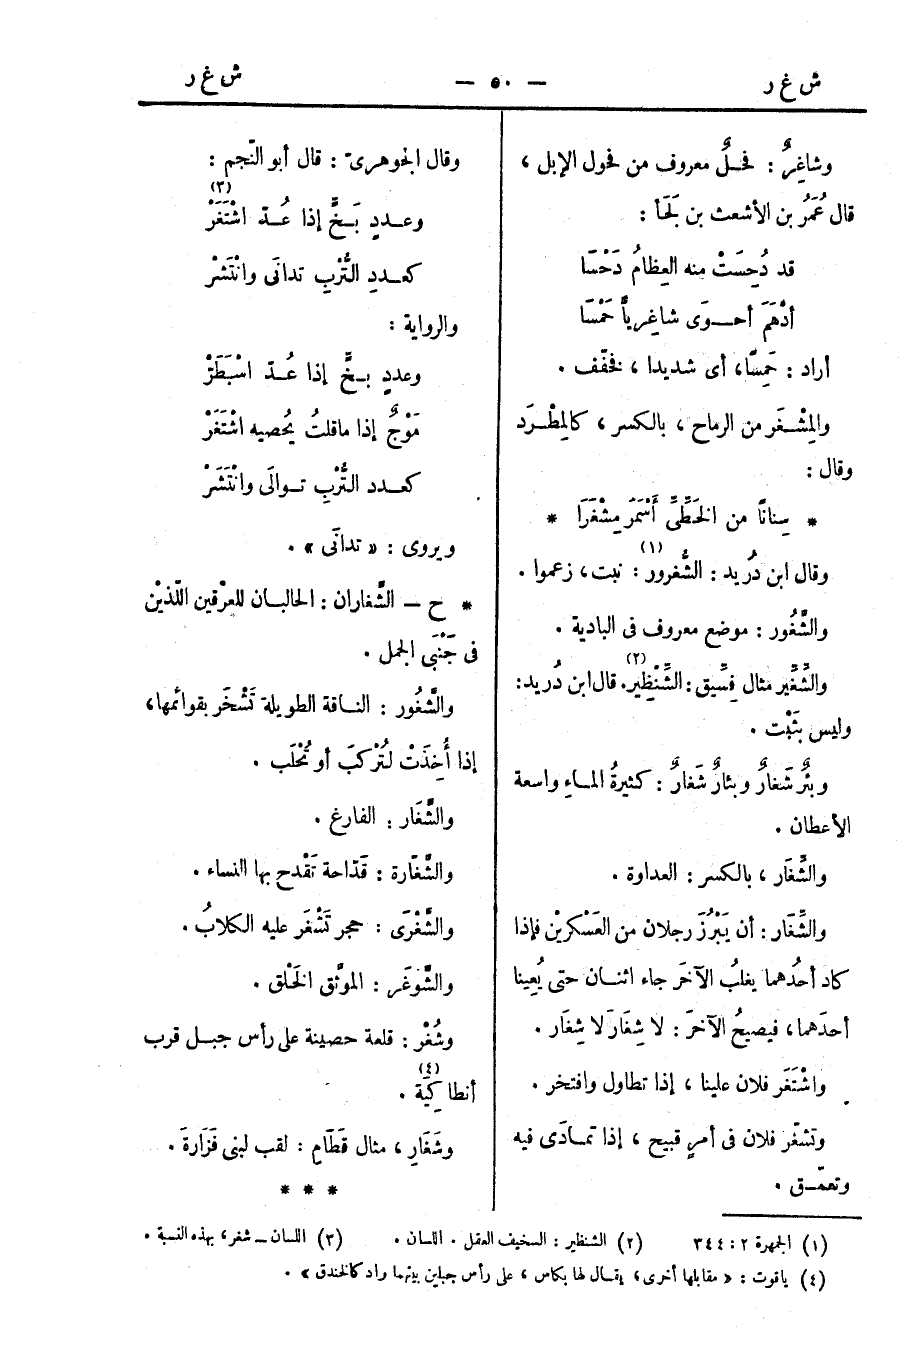 ش غ ر
— ٥٠ —
ش غ ر
وشاغِرٌ : فحلٌ معروف من فحول الإبل ،
قال عُمَرُ بن الأشعث بن لَجَأ :
قد دُحِسَتْ منه العِظامُ دَحْسَا
أدْهَمَ أحــوَى شاغِرياًّ حَمْسَا
أراد : حَمِسًّا، أى شديدا ، فخفّف .
والمِشْغَر من الرماح ، بالكسر ، كالمِطْرَد
وقال :
* سِنانًا من الخَطِّىِّ أَسْمَرَ مِشْغَرَا *
وقال ابن دُريد : الشُّغرور (١) : نبت ، زعموا .
والشَّغُور : موضع معروف فى البادية .
والشِّغِّير مثال فِسِّيق : الشِّنْظِير (٢). قال ابن دُريد :
وليس بثَبْت .
وبئرٌ شَغارٌ وبئارٌ شَغارٌ : كثيرةُ المـاءِ واسعة
الأعطان .
والشِّغَار ، بالكسر : العداوة .
والشِّغَار : أن يَبْرُزَ رجلان من العَسْكرينْ فإذا
كاد أحدُهما يغلبُ الآخرَ جاء اثنـان حتى يُعِينا
أحدَهما، فيصيحُ الآخرَ : لا شِغارَ لا شِغارَ .
واشْتَغَر فلان علينا ، إذا تطاول وافتخر .
وتشغّر فلان فى أمرٍ قبيح ، إذا تمـادَى فيه
وتعمّـق .
وقال الجوهرىّ : قال أبو النّجم :
وعـددٍ بَـخٍّ إذا عُـدّ اشْتَغَرْ (٣)
كعـددِ التُّرْبِ تدانَى وانْتَشَرْ
والرواية :
وعددٍ بـخٍّ إذا عُـدّ اسْبَطَرّ
مَوْجٌ إذا ماقلتُ يُحصيه اشْتَغَرْ
كعـدد التُّرْبِ تـوالَى وانْتَشَرْ
ويروى : « تدانَى » .
* ح — الشَّغاران : الحالبان للعرْقين اللّذيْن
فى جَنْبَىِ الجمل .
والشَّغُور : النـاقة الطويلة تَشْخَر بقوائمها،
إذا أُخِذَتْ لتُرْكبَ أو تُحْلَب .
والشَّغَار : الفارغ .
والشَّغّارة : قدّاحة تَقْدح بها النساء .
والشَّغْرَى : حجر تَشْغَر عليه الكلابُ .
والشَّوغَر : الموثّق الخَلْق .
وشُغْر : قلعة حصينة على رأس جبـل قرب
أنطاكِيَة (٤) .
وشَغَارِ ، مثال قَطَامِ : لقب لبنى فَزَارةَ .
* * *
(١) الجمهرة ٢ : ٣٤٤ (٢) الشنظير : السخيف العقل . اللسان . (٣) اللسان ــ شغر، بهذه النسبة .
(٤) ياقوت : « مقابلها أخرى، يقـال لها بكاس ، على رأس جبلين بينهما واد كالخندق » .